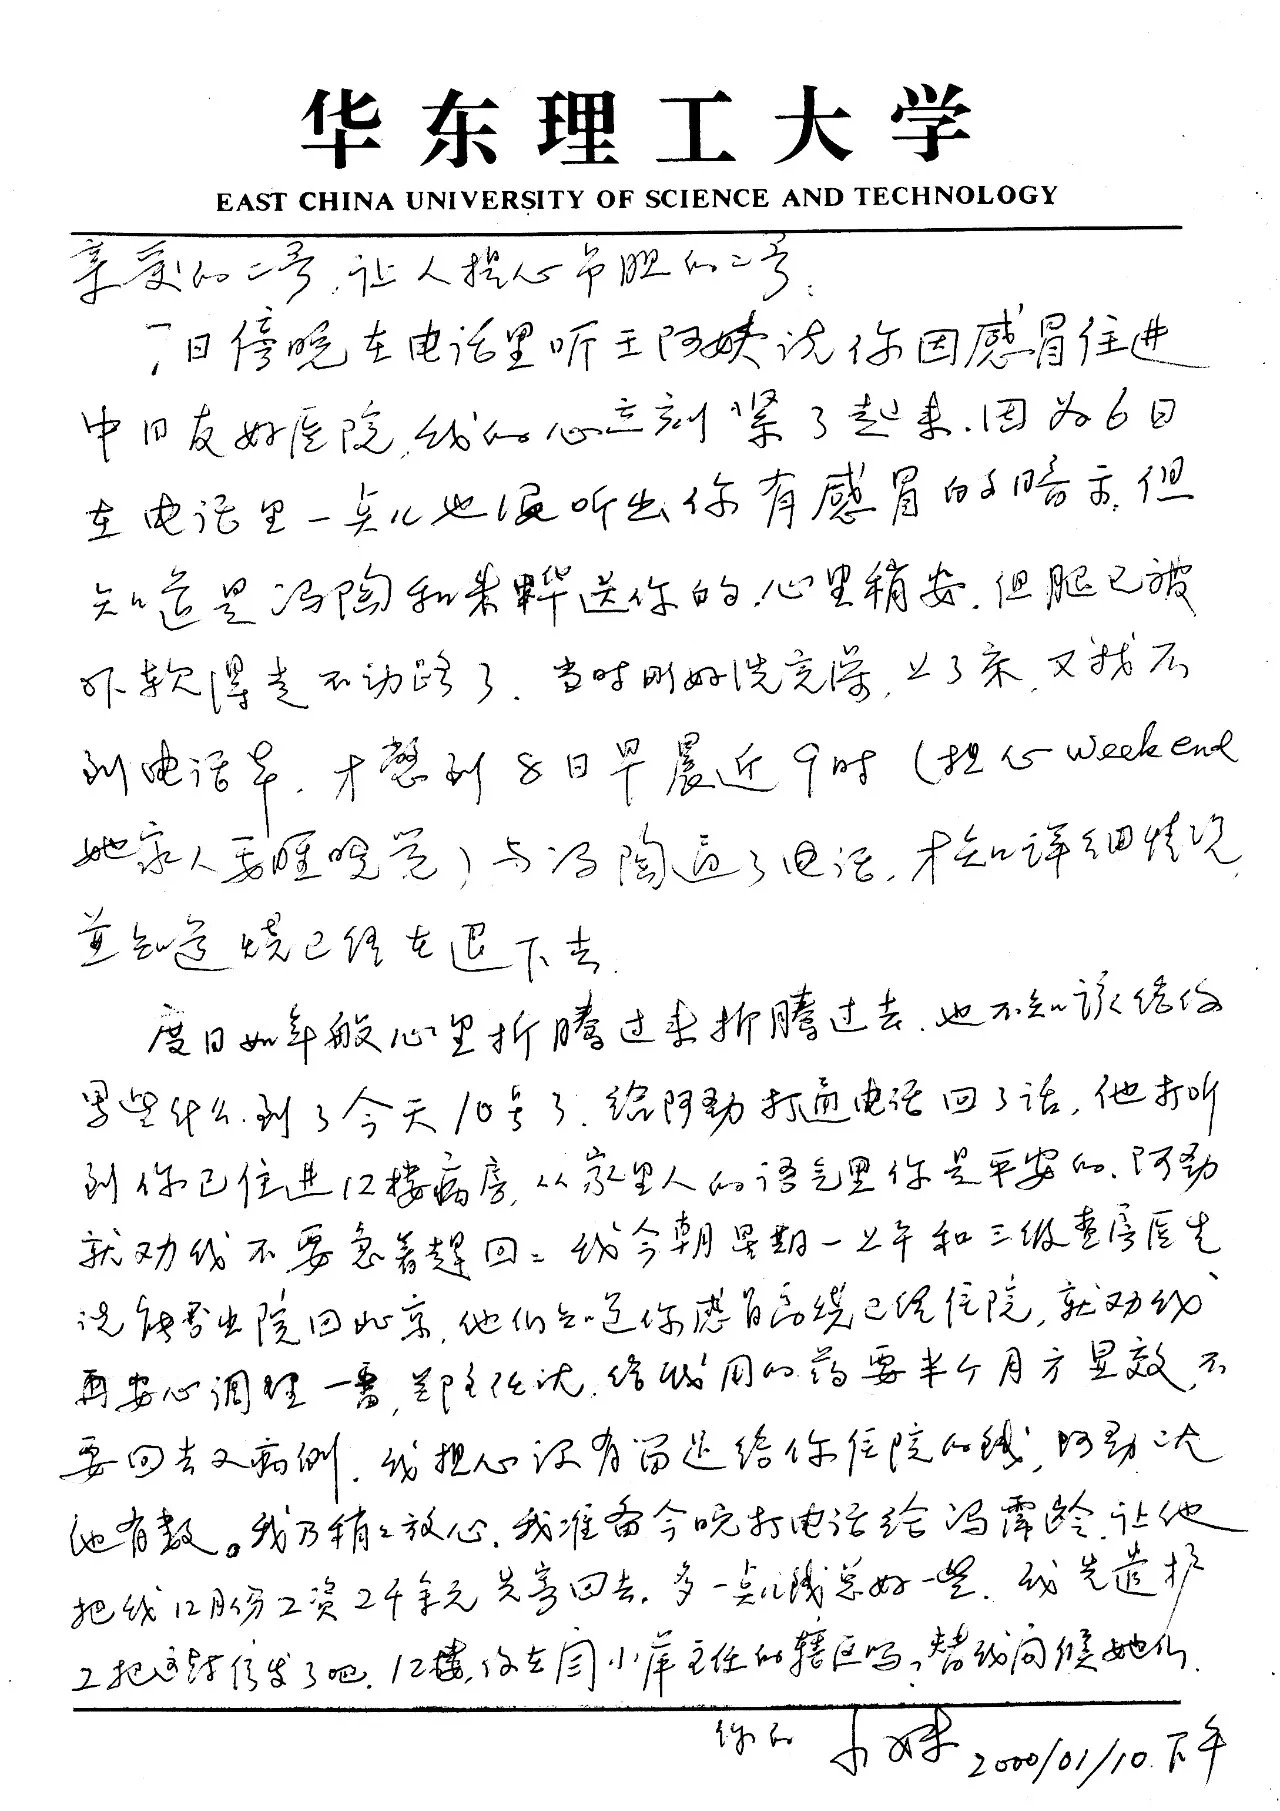 华东理工大学
EAST CHINA UNIVERSITY OF SCIENCE AND TECHNOLOGY
亲爱的二号,让人提心吊胆的二号:
7日傍晚在电话里听王阿姨说你因感冒住进
中日友好医院,我的心立刻紧了起来.因为6日
在电话里一点儿也没听出你有感冒的暗示.但
知道是冯陶和 送你的.心里稍安.但腿已被
吓软得走不动路了.当时刚好洗完澡,上了床,又找不
到电话单.才憋到8日早晨近9时(担心weekend
她家人要睡晚觉)与冯陶通了电话.才知详细情况,
并知道烧已经在退下去.
度日如年般心里折腾过来折腾过去.也不知该给你
写些什么.到了今天10号了.给阿劲打通电话回了话,他打听
到你已住进12楼病房,从家里人的语气里你是平安的.阿劲
就劝我不要急着赶回.我今朝星期一上午和三级查房医生
说能否出院回北京,他们知道你感冒高烧已经住院,就劝我
再安心调理一番,郑主任说.给我用的药要半个月方显效,不
要回去又病倒.我担心没有留足给你住院的钱,阿劲说
他有数。我乃稍稍放心.我准备今晚打电话给冯霄龄,让他
把我12月份工资2千余元先寄回去.多一点儿钱总好一些.我先遣护
工把这封信发了吧.12楼,你在闫小萍主任的辖区吗,替我问候她们.
你的 小妹 2000/01/10.下午